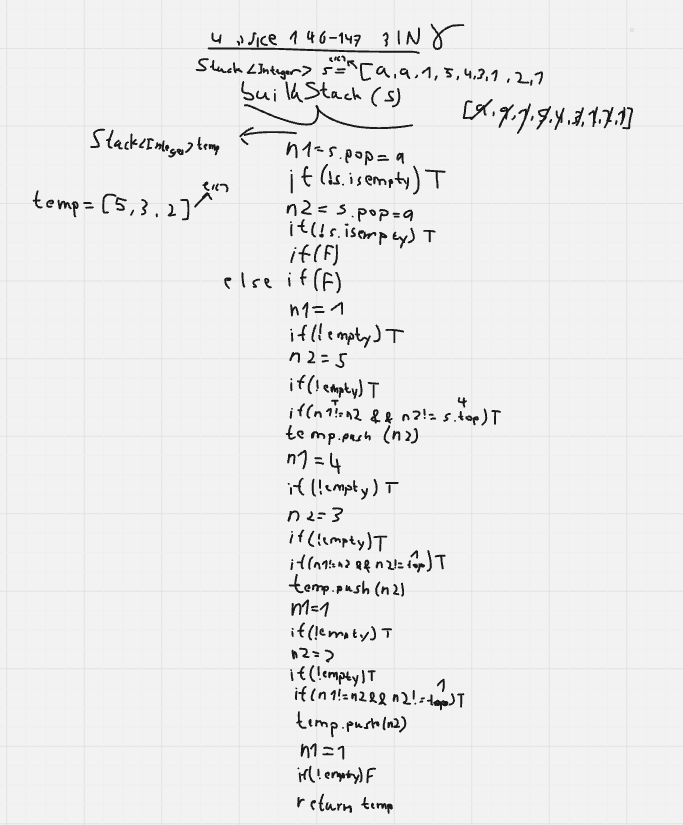 146-147
Stack<Integer> s = [9, 9, 1, 5, 4, 3, 1, 2, 1
buildStack(s)
[9, 9, 1, 5, 4, 3, 1, 2, 1]
Stack<Integer> temp
temp = [5, 3, 2]
n1 = s.pop = 9
if (!s.isempty) T
n2 = s.pop = 9
if (!s.isempty) T
if (F)
else if (F)
n1 = 1
if (!empty) T
n2 = 5
if (!empty) T
T 4
if (n1!=n2 && n2!= s.top) T
temp.push (n2)
n1 = 4
if (!empty) T
n2 = 3
if (!empty) T
1
if (n1!=n2 && n2!=top) T
temp.push (n2)
n1=1
if (!empty) T
n2=2
if (!empty) T
1
if (n1!=n2 && n2!=top) T
temp.push(n2)
n1 = 1
if (!empty) F
return temp